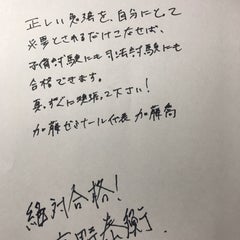 正しい勉強を、自分にとって
必要とされるだけこなせば、
予備試験にも司法試験にも
合格できます。
真っすぐに頑張って下さい!
加藤ゼミナール代表 加藤喬
絶対合格!